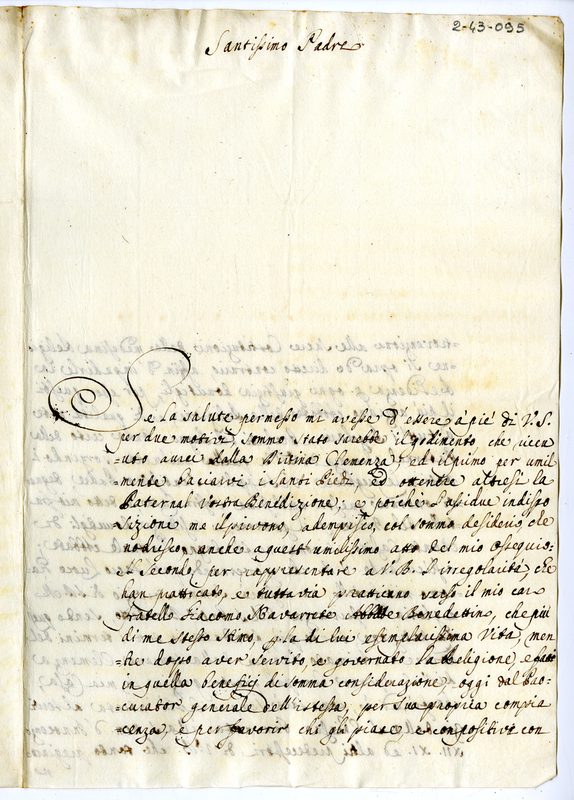 2-43-095
Santissimo Padre
Se la salute permesso mi avesse d'essere a' pie' di V. S.
per due motivi, sommo stato sarebbe il godimento che ricev
=uto avrei dalla Divina Clemenza; ed il primo per umil
=mente bacciarvi i Santi Piedi, ed ottenere altresi la
Paternal Vostra Benedizione; e poiche l'assidue indispo
sizione me il privono, adempisco, col sommo desiderio che
nodrisco, anche a quest' umilissimo atto del mio Ossequio
Il Secondo, per rappresentare a V. B. l'irregolarità, che
han pratticato, e tuttavia pratticano verso il mio caro
Fratello Giacomo Navarrete Benedettino, che più
di me stesso stimo, p la di lui esemplarissima Vita, men
=tre dopo aver servito, e governato la Religione, e
in quella beneficj di somma considerazione, oggi dal Pro=
=curator generale dell'istessa, per sua propria compia
cenza, e per favorir chi gli piace, e con positive con